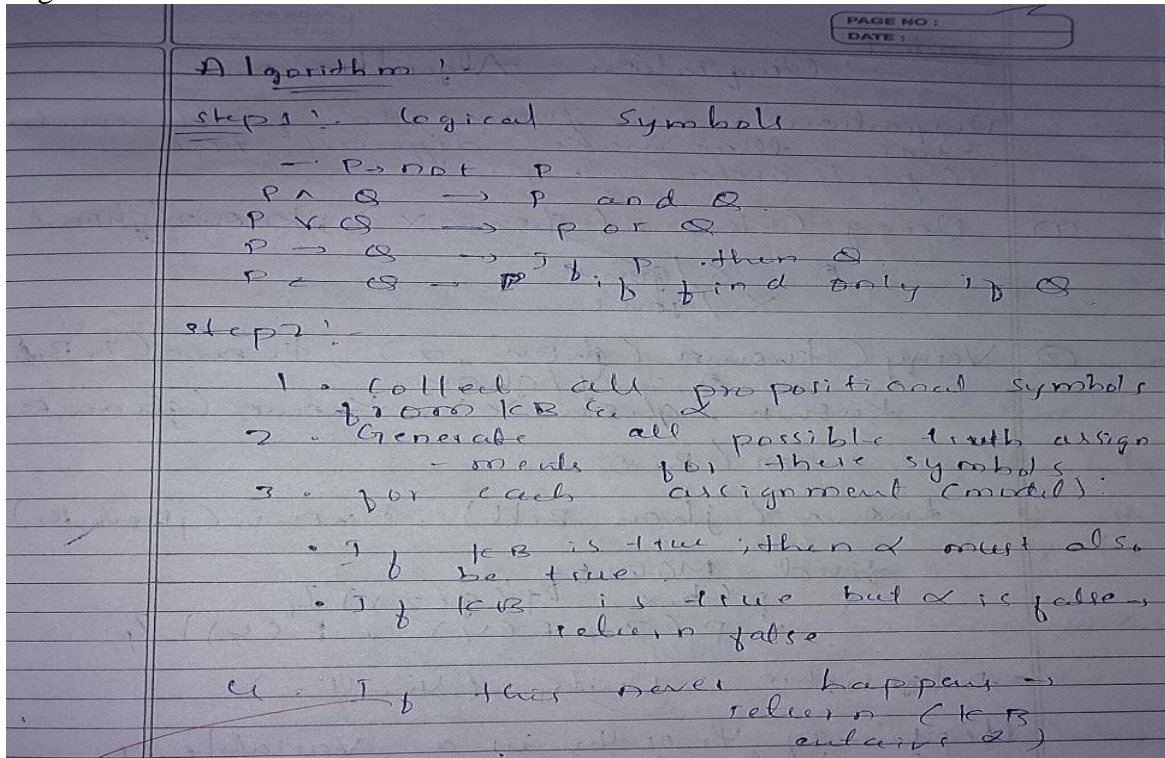 PAGE NO :
DATE :
Algorithm :-
Step 1 :- logical Symbols
¬ P → not P
P ∧ Q → P and Q
P ∨ Q → P or Q
P → Q → If P then Q
P Q → P if only if Q
Step 2 :-
1. Collect all propositional symbols
from KB & α
2. Generate all possible truth assign
- ments for these symbols
3. for each assignment (model) :
• If KB is true ; then α must also
be true.
• If KB is true but α is false →
return false
4. If this never happens →
return (KB
entails α)